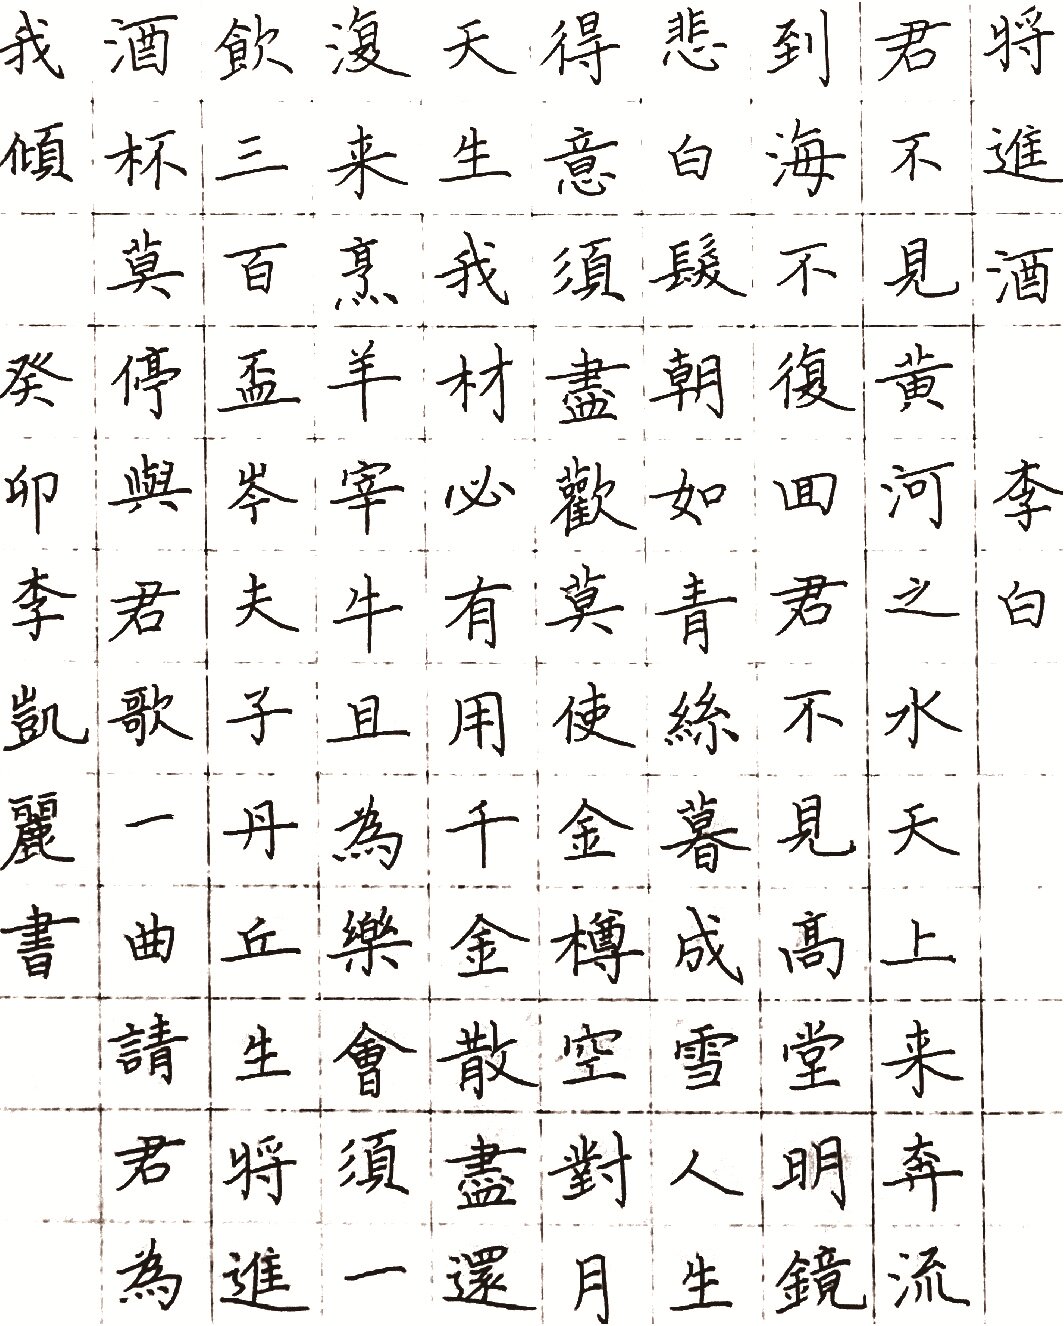 將進酒 李白
君不見黃河之水天上来奔流
到海不復回君不見高堂明鏡
悲白髮朝如青絲暮成雪人生
得意須盡歡莫使金樽空對月
天生我材必有用千金散盡還
復来烹羊宰牛且為樂會須一
飲三百盃岑夫子丹丘生將進
酒杯莫停與君歌一曲請君為
我傾 癸卯李凱麗書